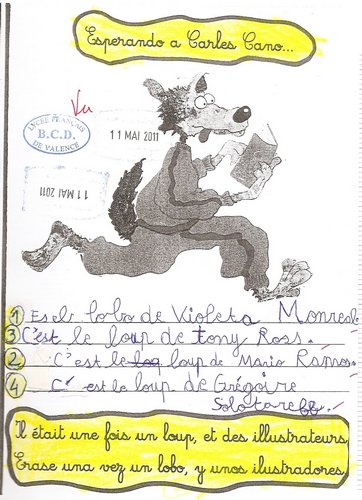 Esperando a Carles Cano...
Vu
LYCÉE FRANÇAIS
B.C.D.
DE VALENCE
11 MAI 2011
11 MAI 2011
1 Es el lobo de Violeta Monreal
3 C'est le loup de Tony Ross.
2 C'est le loup de Mario Ramos.
4 C'est le loup de Grégoire
Solotareff.-
Il était une fois un loup, et des illustrateurs
Érase una vez un lobo, y unos ilustradores